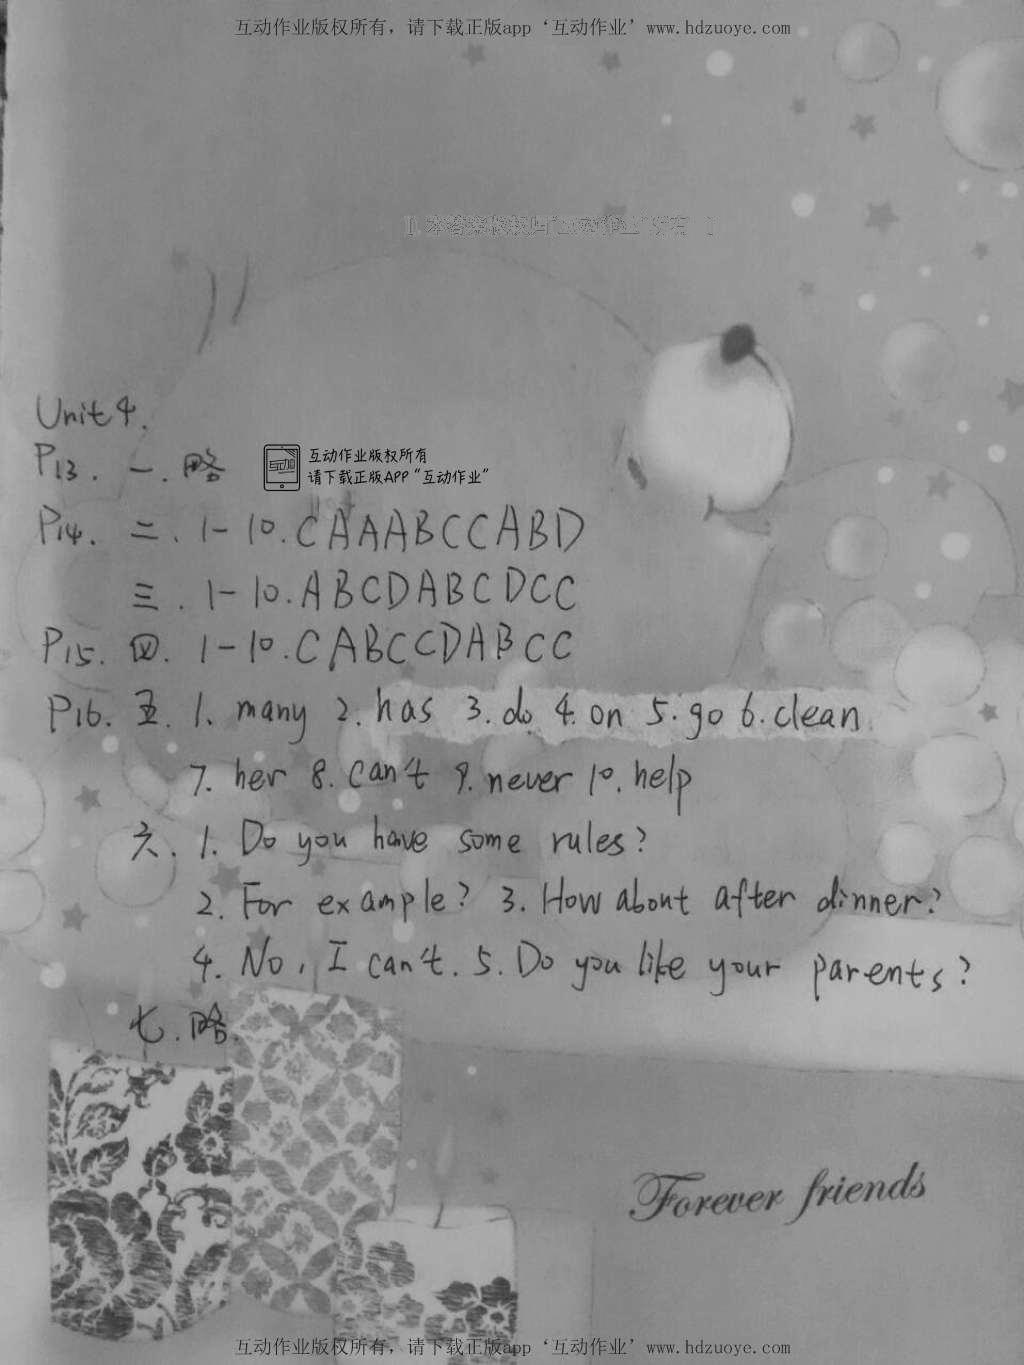 互动作业版权所有，请下载正版app‘互动作业’www.hdzuoye.com
Unit 4.
P13. 一. 略
互动作业版权所有
请下载正版APP“互动作业”
P14. 二. 1-10. CAAABCCABD
三. 1-10. ABCDABCDCC
P15. 四. 1-10. CABCCDABCC
P16. 五. 1. many 2. has 3. do 4. on 5. go 6. clean
7. her 8. can't 9. never 10. help
六. 1. Do you have some rules?
2. For example? 3. How about after dinner?
4. No, I can't. 5. Do you like your parents?
七. 略.
Forever friends
互动作业版权所有，请下载正版app‘互动作业’www.hdzuoye.com